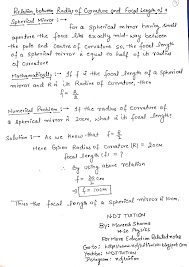 Relation between Radius of Curvature and Focal length of a
Spherical Mirror :-
For a spherical mirror having small
aperture the focus lies exactly mid-way between
the pole and centre of curvature so, the focal length
of a spherical mirror is equal to half of its radius
of curvature
Mathematically :- If f is the focal length of a spherical
mirror and R is its Radius of curvature, then
f = R/2
Numerical Problem :- If the radius of curvature of
a spherical mirror is 20cm, what is its focal length
Solution :- As we know that f = R/2
Here Given Radius of Curvature (R) = 20cm
focal length (f) = ?
By using above relation
f = 20/2 cm
f = 10cm
Thus the focal length of a spherical mirror is 10cm.
NDJ TUITION
By: Sharma
M.Sc Physics
For More Education Related notes
Go to: